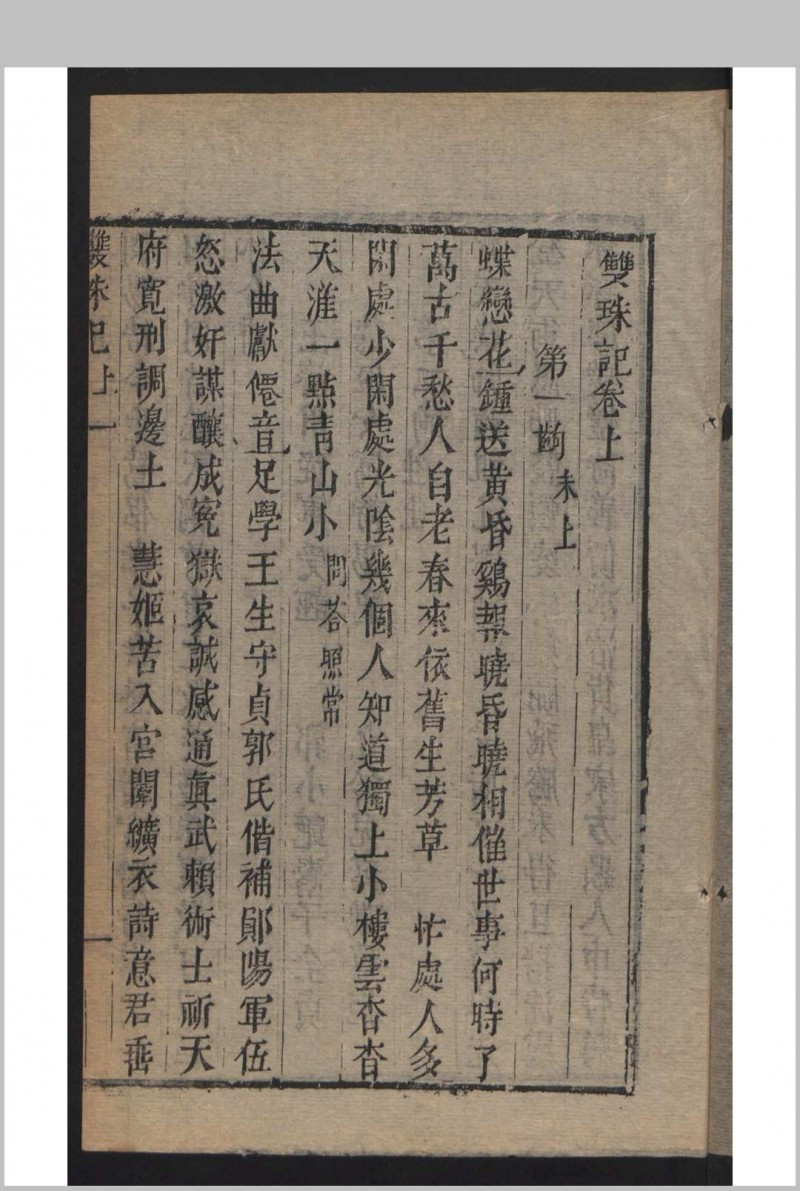 雙珠記卷上
第一齣 末上
蝶戀花鍾送黃昏鷄報曉昏曉相催世事何時了
萬古千愁人自老春來依舊生芳草 忙處人多
閑處少閑處光陰幾個人知道獨上小樓雲杳杳
天涯一點青山小 問荅照常
法曲獻僊音足學王生守貞郭氏偕補鄖陽軍伍
怒激奸謀釀成寃獄哀誠感通眞武賴術士祈天
府寛刑調邊土 慧姬苦入宮闈纊衣詩意君垂
雙珠記上 一